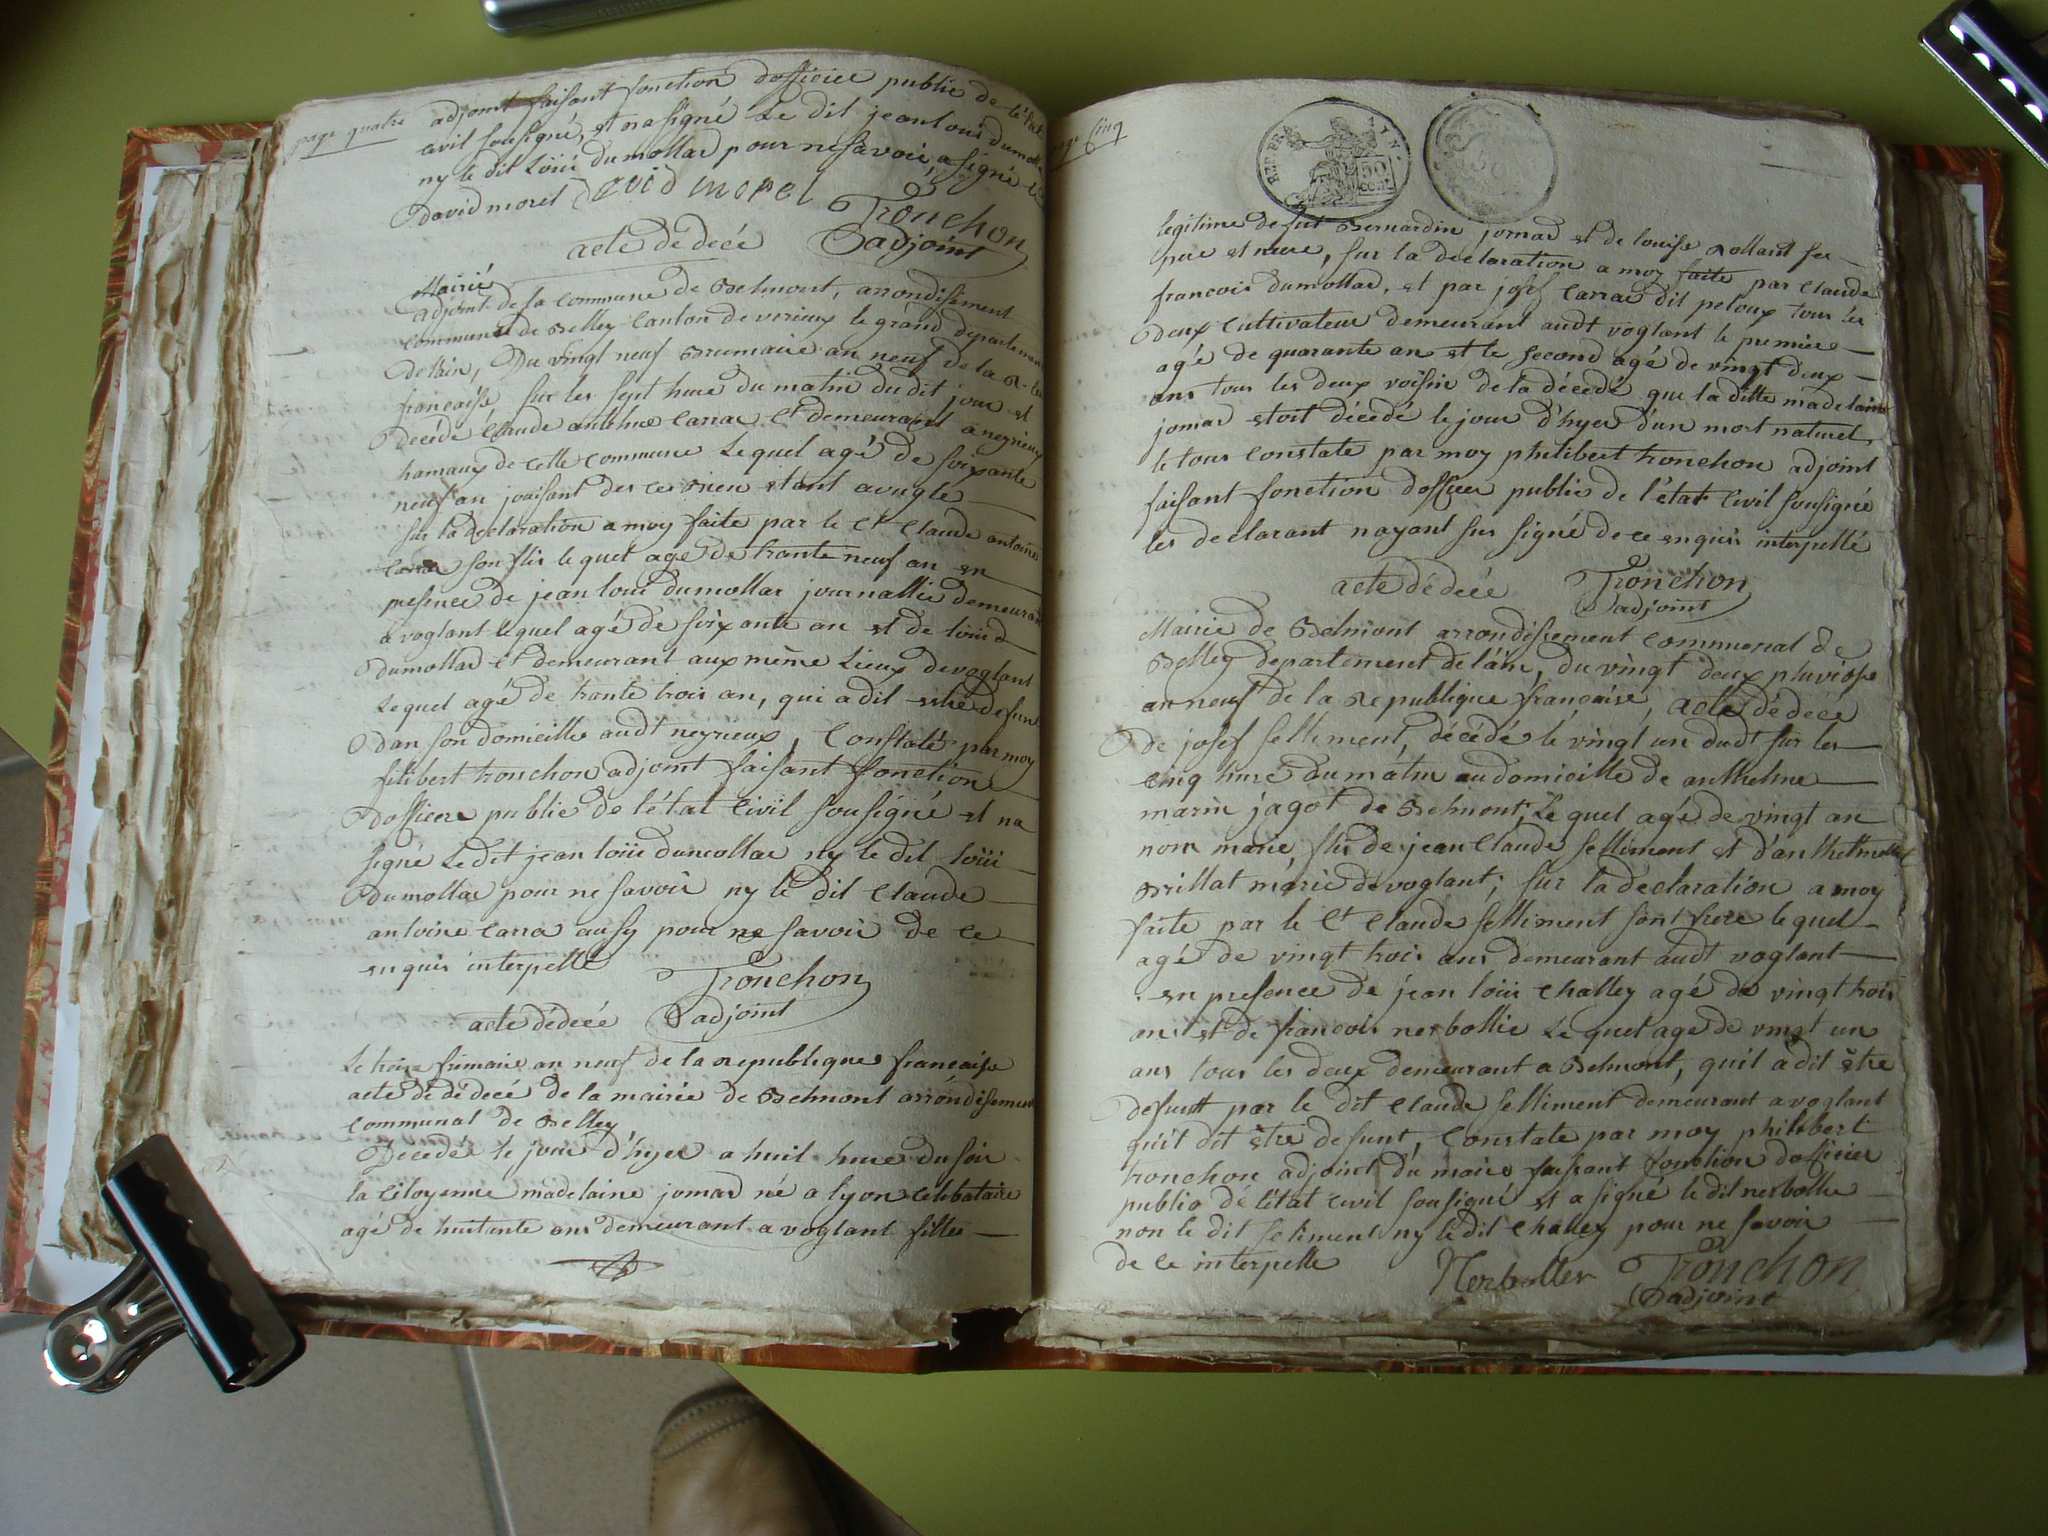 page quatre
adjoint faisant fonction dofficier public de létat
civil sousigné, et na signé Le dit jean louis dumollar
ny le dit Loüis dumollar pour ne savoir, a signé le
David morel David morel Tronchon
acte de decé adjoint
Mairié
adjoint de la commune de Belmont, arrondisement
communal de Belley Canton de verieux le grand departement
de lain, Du vingt neuf Brumaire an neuf de la Re
francaise sur les sept hure du matin du dit jour est
decédé Claude anthme Carra Ct demeurant a neyrieux
hamaux de cette commune Le quel agé de soixante
neuf an jouisant des ces Bien etant avugle
sur la declaration a moy faite par le Ct Claude antoine
Carra son flis le quel agé de trante neuf an en
presence de jean loui dumollar journallié demeurant
a voglant le quel agé de soixante an et de loüi d
dumollar Ct demeurant aux même Lieux de voglant
Le quel agé de trante trois an, qui a dit estre defun
dan son domicille audt neyrieux, Constaté par moy
filibert tronchon adjoint faisant fonction
dofficier public de l'état Civil sousigné et na
signé Le dit jean loüi dumollar ny le dit loüi
dumollar pour ne savoir ny le dit Claude
antoine Carra ausy pour ne savoir de ce
enquis interpellé Tronchon
acte dédecé adjoint
Le troize frimaire an neuf de la republique francaise
acte de dédecé de la mairie de Belmont arróndisement
Communal de Belley
Décedé le jour d'hyer a huit hure du soir
la Citoyenne madelaine jomar né a lyon celibataire
agé de huitante ans demeurant a voglant filles
page cinq
REP. FRA.
50
CENT.
legitime de fut Bernardin jomar et de louise Rollant ses
pere et mere, sur la declaration a moy faite par Claude
francois dumollar, et par josef Carra dit peloux tous les
deux Cultivateur demeurant audt voglant le premier
agé de quarante an et le second agé de vingt deux
ans tous les deux voisin de la décedé que la ditte madelaine
jomar etoit décedé le jour d'hyer d'un mort naturel
le tous Constate par moy philibert tronchon adjoint
faisant fonction dofficer public de l'état Civil sousigné
les declarant nayant sus signé de ce enquis interpellé
acte dédecé Tronchon
adjoint
Mairie de Belmont arrondissement communal de
Belley departement de láin, du vingt deux pluviose
an neuf de la Republique francaise, acte dédéce
de josef selliment, décédé le vingt un dudt sur les
cinq hure du mátin au domicille de anthelme
marin jagot de Belmont, Le quel agé de vingt an
non marie, flis de jean Claude selliment et d'anthelmette
Brillat marié de voglant; sur la declaration a moy
faite par le Ct Claude selliment sont frere le quel
agé de vingt trois ans demeurant audt voglant
en presence de jean loüi Challey agé de vingt trois
ans et de francois nerbollie Le quel agé de vingt un
ans tous les deux demeurant a Belmont, quil a dit être
defunt par le dit Claude selliment demeurant a voglant
quil dit être defunt, Constate par moy philibert
tronchon adjoint du maire faisant fonction dofficier
public de létat Civil sousigné et a signé le dit nerbollie
non le dit seliment ny le dit Challey pour ne savoir
de ce interpelle Nerbollier Tronchon
adjoint